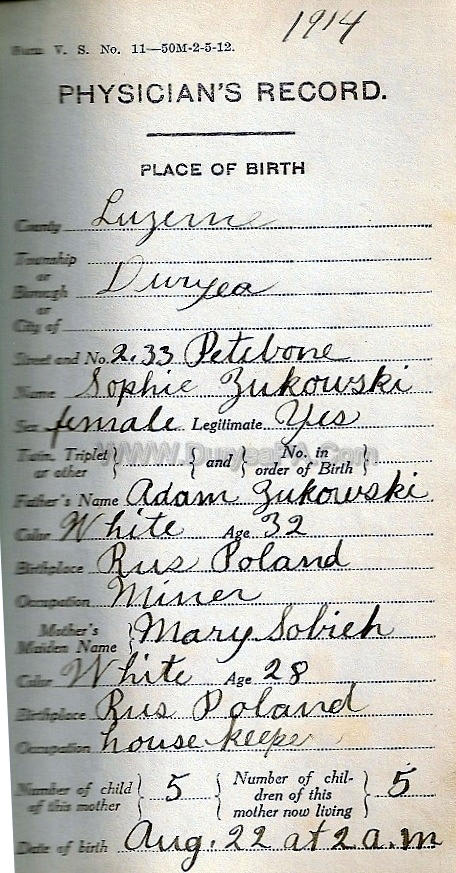 1914
Form V. S. No. 11—50M-2-5-12.
PHYSICIAN'S RECORD.
PLACE OF BIRTH
County Luzerne
Township
or
Borough Duryea
or
City of
Street and No. 233 Petebone
Name Sophie Zukowski
Sex female Legitimate Yes
WWW.DuryeaPA.Com
Twin, Triplet or other } { and { No. in order of Birth }
Father's Name Adam Zukowski
Color White Age 32
Birthplace Rus Poland
Occupation Miner
Mother's Maiden Name } Mary Sobieh
Color White Age 28
Birthplace Rus Poland
Occupation housekeeper
Number of child of this mother } 5 { Number of children of this mother now living } 5
Date of birth Aug. 22 at 2 a.m